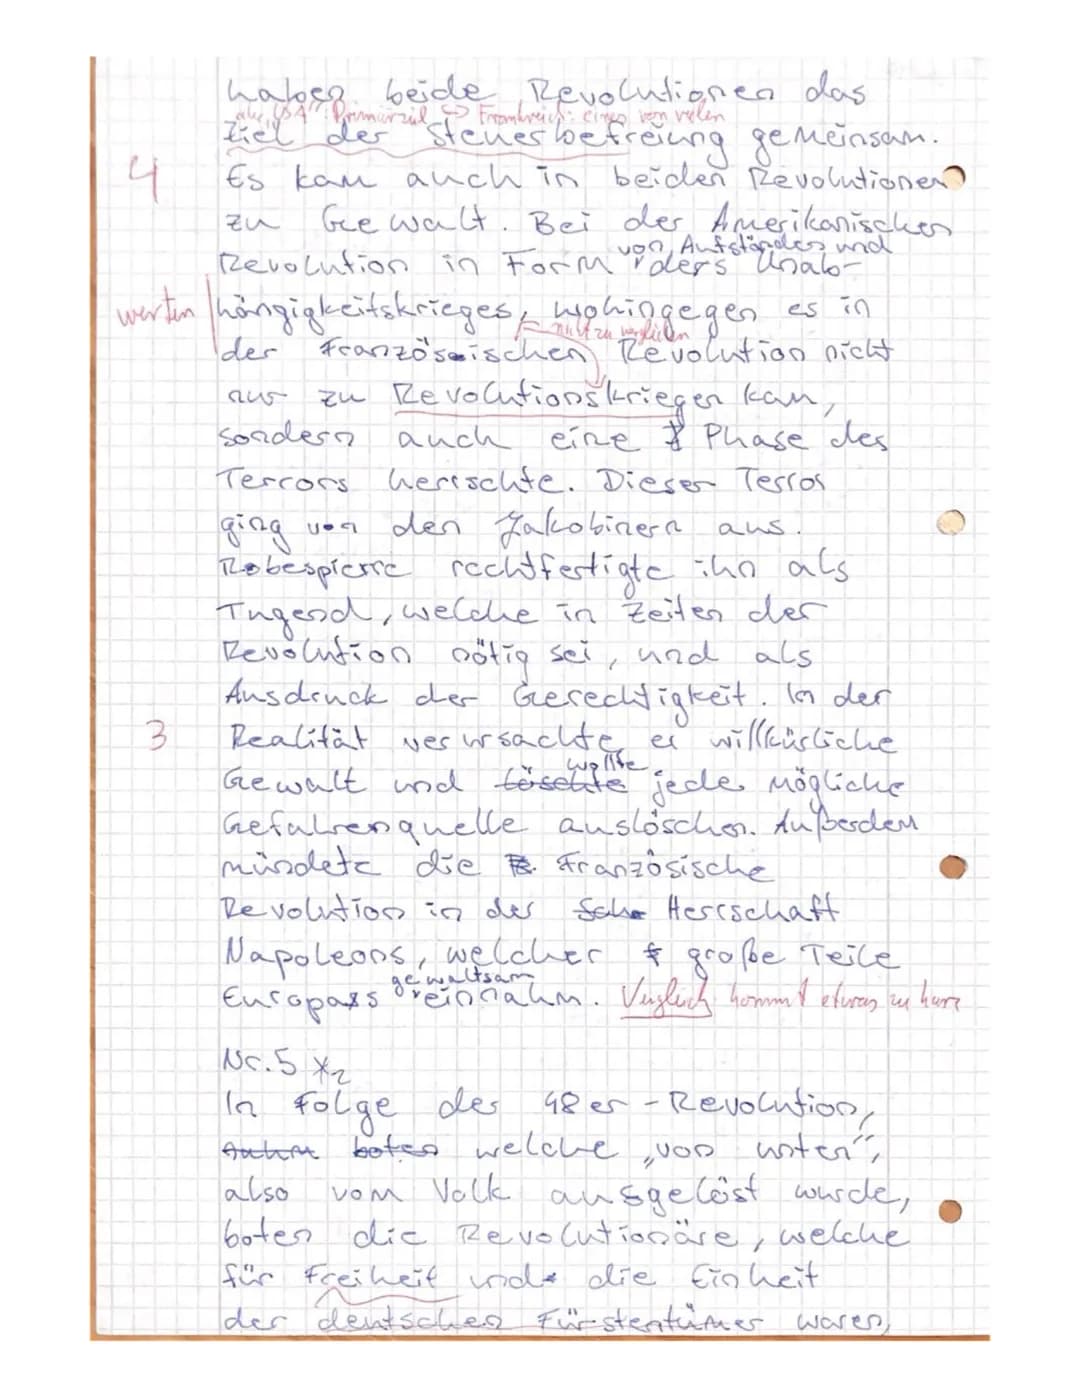 haben beide Revolutionen das
aber USA: Primärziel ↔ Frankreich: eines von vielen
Ziel der Steuerbefreiung gemeinsam.
4 Es kam auch in beiden Revolutionen
zu Gewalt. Bei der Amerikanischen
von Aufständen und
Revolution in Form ders Unab-
werten hängigkeitskrieges, wohingegen es in
nicht zu vergleichen
der Französischen Revolution nicht
nur zu Revolutionskriegen kam,
sondern auch eine Phase des
Terrors herrschte. Dieser Terror
ging von den Jakobinern aus.
Robespierre rechtfertigte ihn als
Tugend, welche in Zeiten der
Revolution nötig sei, und als
Ausdruck der Gerechtigkeit. In der
3 Realität verursachte er willkürliche
wollte
Gewalt und löschte jede mögliche
Gefahrenquelle auslöschen. Außerdem
mündete die Französische
Revolution in der Herrschaft
Napoleons, welcher große Teile
gewaltsam
Europas einnahm. Vergleich kommt etwas zu kurz
Nr.5 *2
In Folge der 48er-Revolution,
boten welche „von unten",
also vom Volk ausgelöst wurde,
boten die Revolutionäre, welche
für Freiheit und die Einheit
der deutschen Fürstentümer waren,